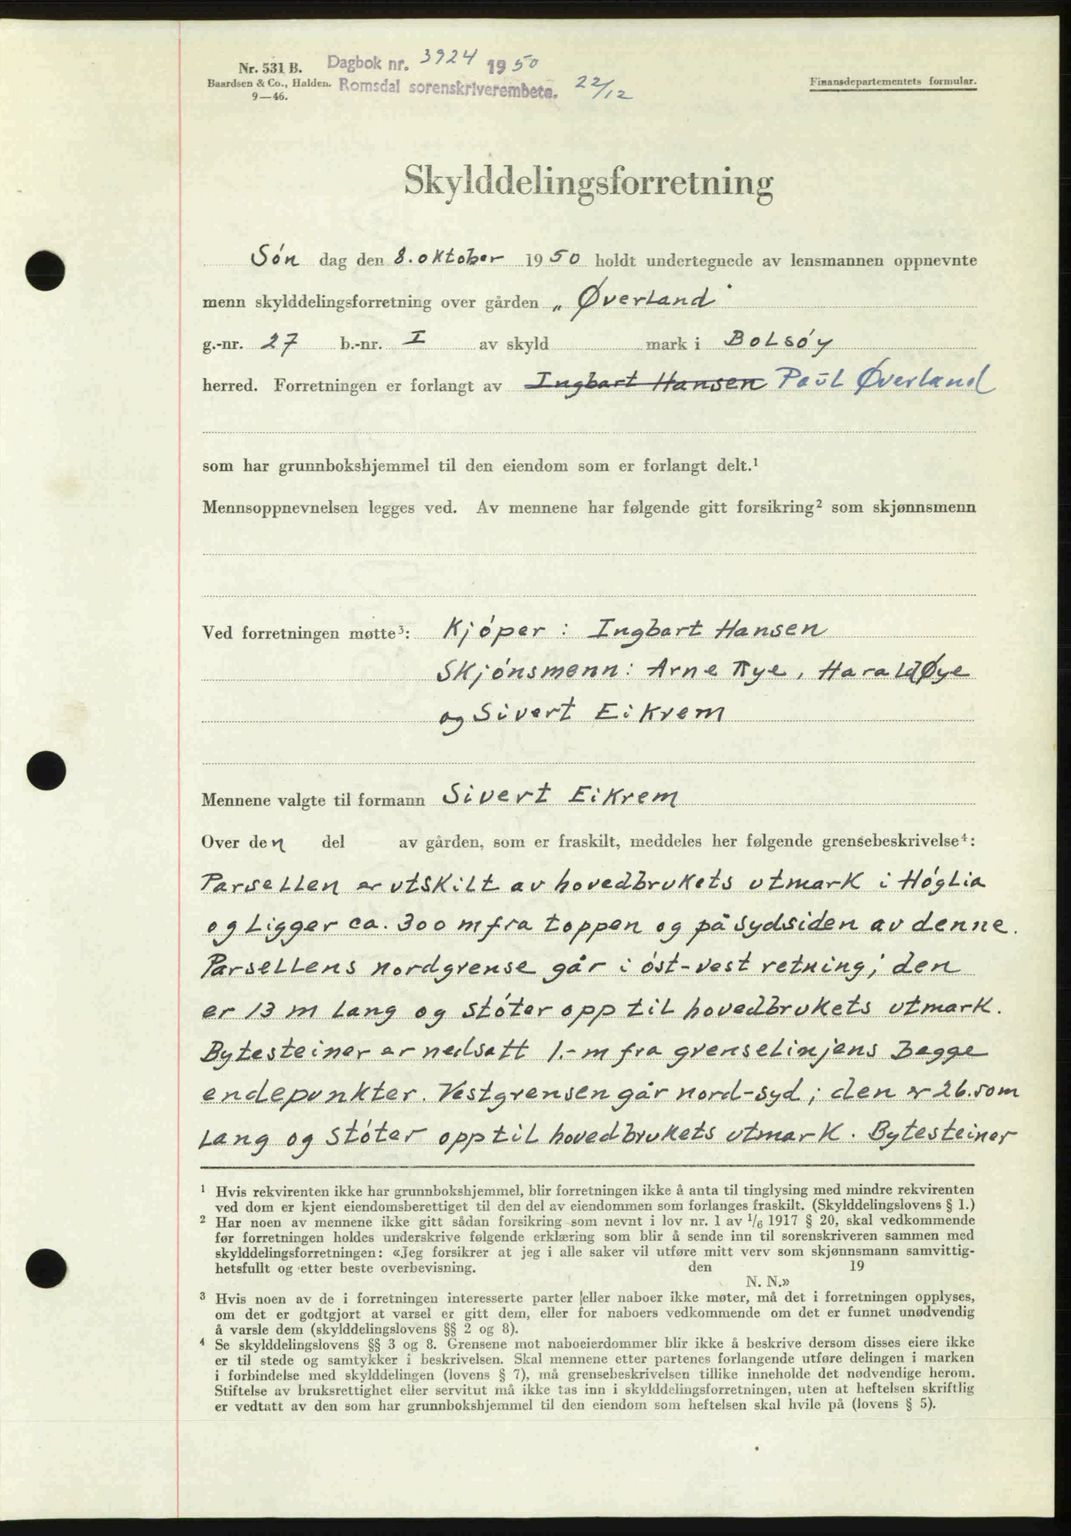 Nr. 531 B.
Baardsen & Co., Halden.
9—46.
Dagbok nr. 3924 1950
Romsdal sorenskriverembete. 22/12
Finansdepartementets formular.
Skylddelingsforretning
Søn dag den 8. oktober 1950 holdt undertegnede av lensmannen oppnevnte
menn skylddelingsforretning over gården „Øverland"
g.-nr. 27 b.-nr. I av skyld mark i Bolsøy
herred. Forretningen er forlangt av Ingbart Hansen Paul Øverland
som har grunnbokshjemmel til den eiendom som er forlangt delt.¹
Mennsoppnevnelsen legges ved. Av mennene har følgende gitt forsikring² som skjønnsmenn
Ved forretningen møtte³: Kjóper : Ingbart Hansen
Skjónsmenn: Arne Rye, Harald Øye
og Sivert Eikrem
Mennene valgte til formann Sivert Eikrem
Over den del av gården, som er fraskilt, meddeles her følgende grensebeskrivelse⁴:
Parsellen er utskilt av hovedbrukets utmark i Hóglia
og ligger ca. 300 m fra toppen og på sydsiden av denne.
Parsellens nordgrense går i óst-vest retning; den
er 13 m lang og stóter opp til hovedbrukets utmark.
Bytesteiner er nedsatt 1.-m fra grenselinjens begge
endepunkter. Vestgrensen går nord-syd; den er 26.som
lang og stóter opp til hovedbrukets utmark. Bytesteiner
¹ Hvis rekvirenten ikke har grunnbokshjemmel, blir forretningen ikke å anta til tinglysing med mindre rekvirenten
ved dom er kjent eiendomsberettiget til den del av eiendommen som forlanges fraskilt. (Skylddelingslovens § 1.)
² Har noen av mennene ikke gitt sådan forsikring som nevnt i lov nr. 1 av 1/6 1917 § 20, skal vedkommende
før forretningen holdes underskrive følgende erklæring som blir å sende inn til sorenskriveren sammen med
skylddelingsforretningen: «Jeg forsikrer at jeg i alle saker vil utføre mitt verv som skjønnsmann samvittig-
hetsfullt og etter beste overbevisning. den 19
N. N.»
³ Hvis noen av de i forretningen interesserte parter (eller naboer ikke møter, må det i forretningen opplyses,
om det er godtgjort at varsel er gitt dem, eller for naboers vedkommende om det er funnet unødvendig
å varsle dem (skylddelingslovens §§ 2 og 8).
⁴ Se skylddelingslovens §§ 3 og 8. Grensene mot naboeierdommer blir ikke å beskrive dersom disses eiere ikke
er til stede og samtykker i beskrivelsen. Skal mennene etter partenes forlangende utføre delingen i marken
i forbindelse med skylddelingen (lovens § 7), må grensebeskrivelsen tillike inneholde det nødvendige herom.
Stiftelse av bruksrettighet eller servitut må ikke tas inn i skylddelingsforretningen, uten at heftelsen skriftlig
er vedtatt av den som har grunnbokshjemmel til den eiendom som heftelsen skal hvile på (lovens § 5).